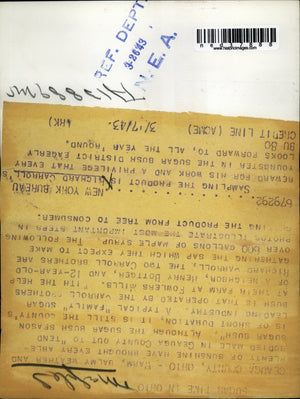 SUGAR TIME IN OHIO
GEAUGA COUNTY, OHIO - WARM, BALMY WEATHER AND
PLENTY OF SUNSHINE HAVE BROUGHT EVERY ABLE-
BODIED MALE IN GEAUGA COUNTY OUT TO "TEND
SUGAR BUSH". ALTHOUGH THE SUGAR BUSH SEASON
IS OF SHORT DURATION, IT IS STILL THE COUNTY'S
LEADING INDUSTRY. A TYPICAL "FAMILY" SUGAR
BUSH IS THAT OPERATED BY THE CARROLL BROTHERS
AT THE FARM AT FOWLERS MILLS. WITH THE HELP
OF HENRY ROTTGER, AND 12-YEAR-OLD
RICHARD CARROLL, THE TWO CARROLL BROTHERS ARE
GATHERING THE SAP WHICH THEY EXPECT TO MAKE
OVER GALLONS OF MAPLE SYRUP. THE FOLLOWING
PHOTOS ILLUSTRATE THE MOST IMPORTANT STEPS IN
THE PRODUCT FROM TREE TO CONSUMER.
679292 NEW YORK BUREAU
SAMPLING THE PRODUCT IS RICHARD CARROLL'S
REWARD FOR HIS WORK AND A PRIVILEGE THAT EVERY
YOUNGSTER IN THE SUGAR BUSH DISTRICT EAGERLY
LOOKS FORWARD TO, ALL THE YEAR 'ROUND.
BU BC
CREDIT LINE (ACME) 3/17/43. (HK)
REF. DEPT.
3-26-43
N. E. A.
www.historicimages.com